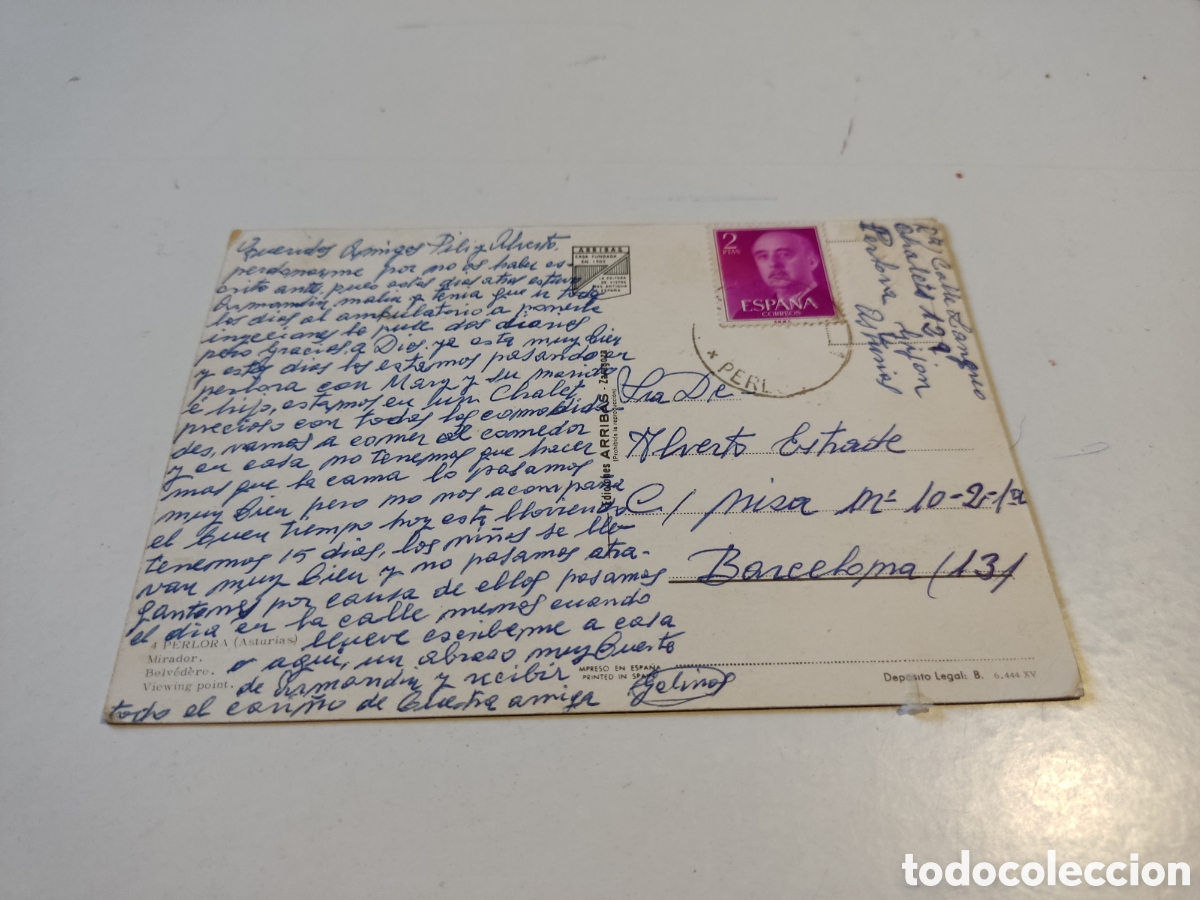 Queridos Amigos Pili y Alverto.
perdonarme por no os haber es-
crito ante, pues estos dias atras estuvo
Armandin malin y tenia que ir todos
los dias al ambulatorio a ponerle
inyeciones le puse dos diarias
pero gracias a Dios, ya esta muy bien
y estos dias los estamos pasando en
perlora con Mary y su marido
e hijo, estamos en un Chalet
precioso con todas las comodida
des, vamos a comer al comedor
y en casa no tenemos que hacer
mas que la cama lo pasamos
muy bien pero no nos acompaña
el buen tiempo hoy esta lloviendo
tenemos 15 dias, los niños se lle-
van muy bien y no pasamos atra-
gantones por causa de ellos pasamos
el dia en la calle menos cuando
llueve escriberme a casa
o aqui, un abrazo muy fuerte
de Armandin y recibir
todo el cariño de buestra amiga
4 PERLORA (Asturias)
Mirador.
Belvédère.
Viewing point.
ARRIBAS
CASA FUNDADA
EN 1905
LA EDITORA
DE VISTAS
MAS ANTIGUA
ESPAÑA
Ediciones ARRIBAS - Zaragoza
(Prohibida la reproducción)
IMPRESO EN ESPAÑA
PRINTED IN SPAIN
2
PTAS
ESPAÑA
CORREOS
PERL
Chalet 129
Perlora Gijon
Asturias
Sra De
Alverto Estrade
C/ Nisa Nº 10-2-1ª
Barcelona (13)
Depósito Legal: B. 6.444 XV
todocoleccion